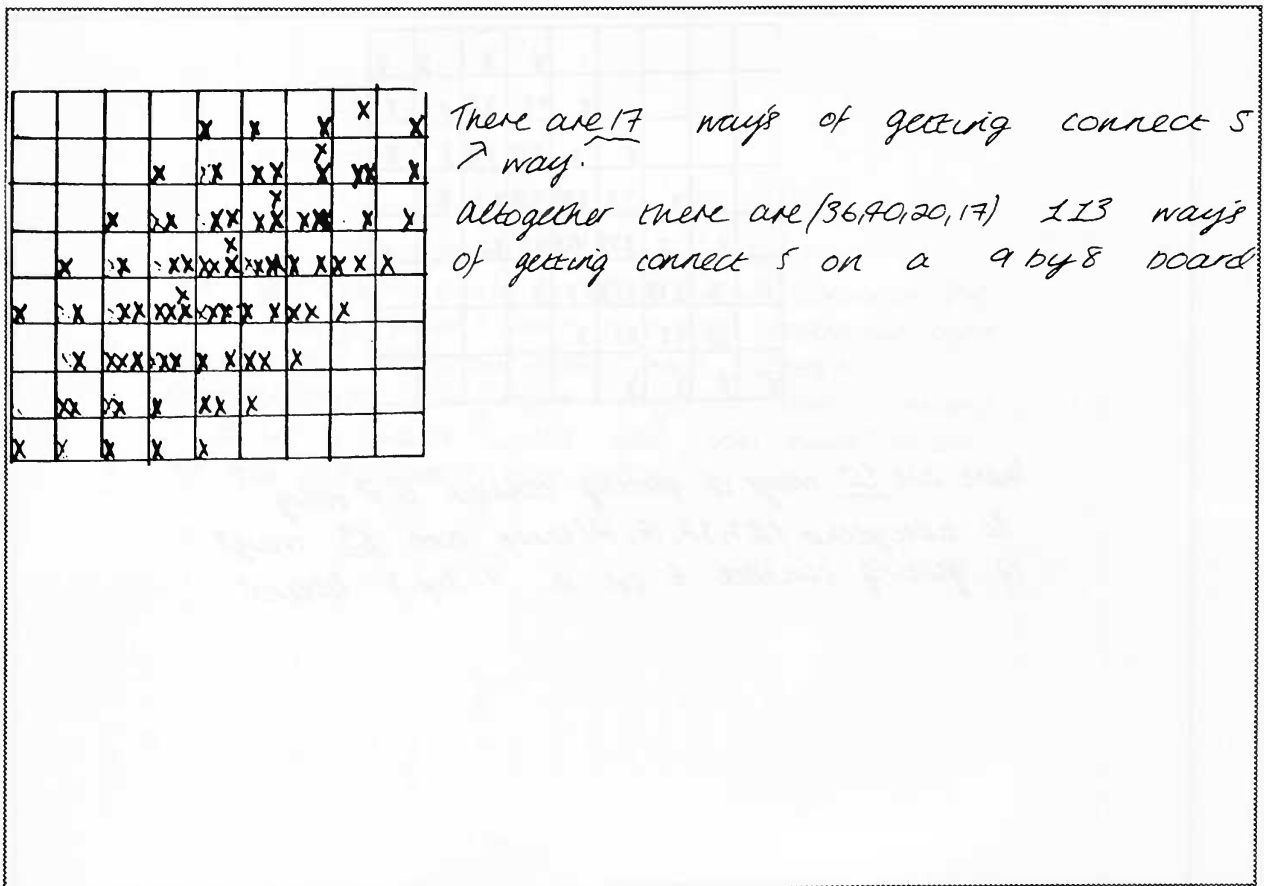 There are 17 way's of getting connect 5
↗ way.
altogether there are (36,40,20,17) 113 way's
of getting connect 5 on a 9 by 8 board